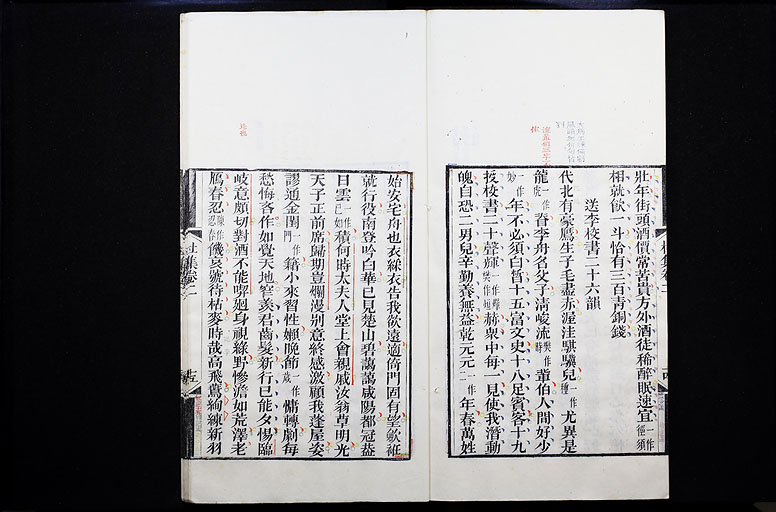 壯年街頭酒價常苦貴方外酒徒稀醉眠速宜一作徑須
相就飲一斗恰有三百青銅錢
送李校書二十六韻
代北有豪鷹生子毛盡赤渥洼騏驥兒一作種尤異是
龍一作虎脊李舟名父子清峻流輩伯人間好少
一作妙年不必須白晳十五富文史十八足賓客十九
授校書二十聲輝赫衆中每一見使我潛動
魄自恐二男兒辛勤養無益乾元元一作二年春萬姓
始安宅舟也衣綵衣告我欲遠適倚門固有望歛衽
就行役南登吟白華已見楚山碧藹藹咸陽都冠蓋
日雲一作已如積何時太夫人堂上會親戚汝翁草明光
天子正前席歸期豈爛漫别意終感激顧我蓬屋姿
謬通金閨一作門籍小來習性懶晚節一作歲慵轉劇每
愁悔吝作如覺天地窄羨君齒髮新行已能夕惕臨
岐意頗切對酒不能喫迴身視綠野慘澹如荒澤老
鴈春忍饑哀號待枯麥時哉高飛鷰絢練新羽
杜集卷二